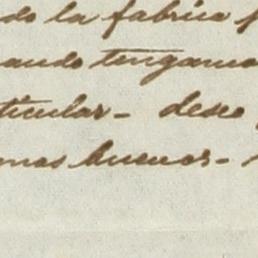 do la fabrica
ando tengamo
ticular - deseo
mas buenos -